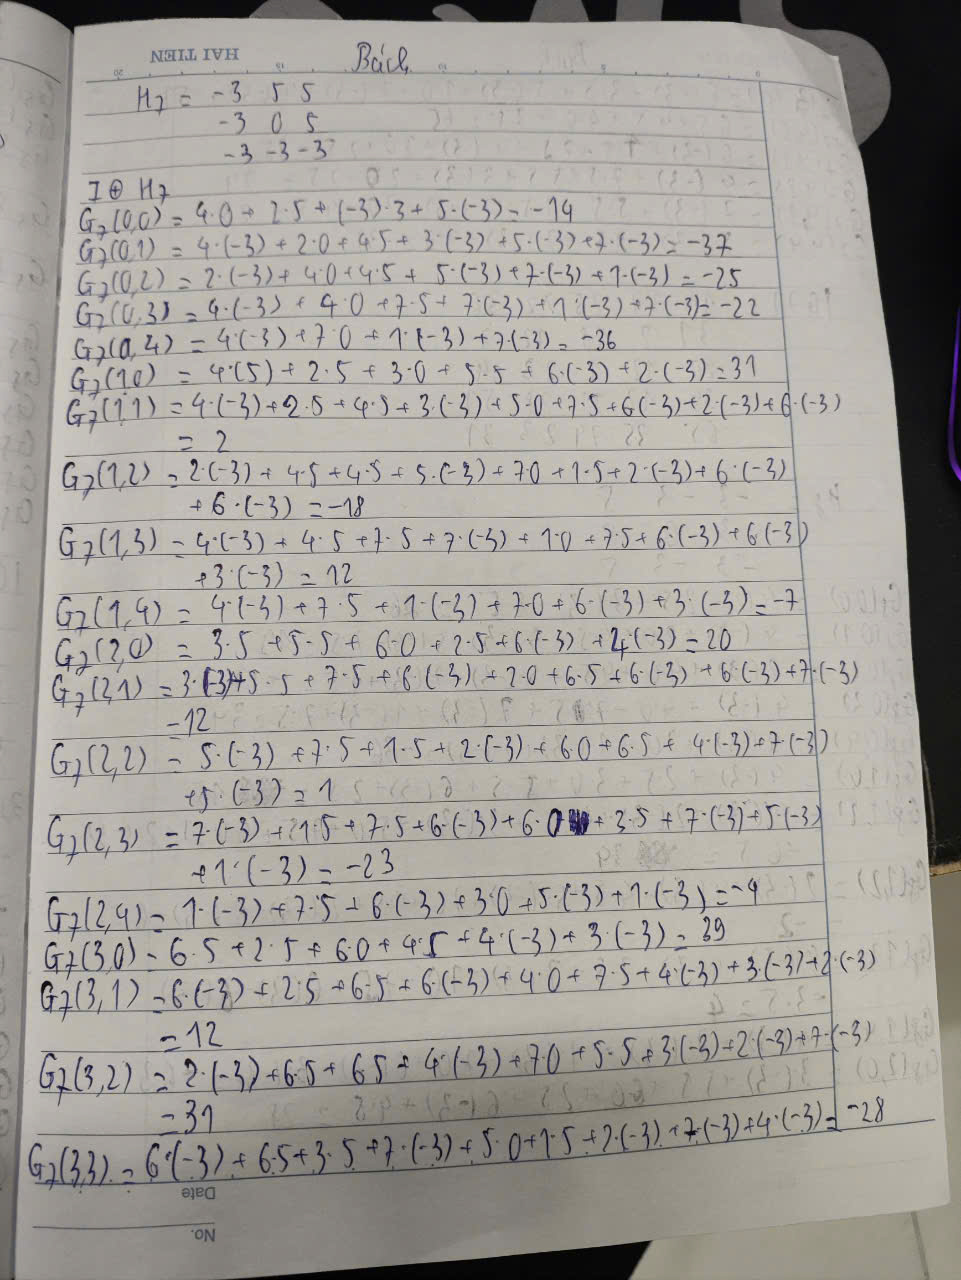 HAI TIEN
Bách
H7 = -3 5 5
-3 0 5
-3 -3 -3
I ⊕ H7
G7(0,0) = 4·0 + 2·5 + (-3)·3 + 5·(-3) = -14
G7(0,1) = 4·(-3) + 2·0 + 4·5 + 3·(-3) + 5·(-3) + 7·(-3) = -37
G7(0,2) = 2·(-3) + 4·0 + 4·5 + 5·(-3) + 7·(-3) + 1·(-3) = -25
G7(0,3) = 4·(-3) + 4·0 + 7·5 + 7·(-3) + 1·(-3) + 7·(-3) = -22
G7(0,4) = 4·(-3) + 7·0 + 1·(-3) + 7·(-3) = -36
G7(1,0) = 4·(5) + 2·5 + 3·0 + 5·5 + 6·(-3) + 2·(-3) = 31
G7(1,1) = 4·(-3) + 2·5 + 4·5 + 3·(-3) + 5·0 + 7·5 + 6(-3) + 2·(-3) + 6·(-3)
= 2
G7(1,2) = 2·(-3) + 4·5 + 4·5 + 5·(-3) + 7·0 + 1·5 + 2·(-3) + 6·(-3)
+ 6·(-3) = -18
G7(1,3) = 4·(-3) + 4·5 + 7·5 + 7·(-3) + 1·0 + 7·5 + 6·(-3) + 6(-3)
+ 3·(-3) = 12
G7(1,4) = 4·(-3) + 7·5 + 1·(-3) + 7·0 + 6·(-3) + 3·(-3) = -7
G7(2,0) = 3·5 + 5·5 + 6·0 + 2·5 + 6·(-3) + 4·(-3) = 20
G7(2,1) = 3·(-3) + 5·5 + 7·5 + 6·(-3) + 2·0 + 6·5 + 6·(-3) + 6·(-3) + 7·(-3)
-12
G7(2,2) = 5·(-3) + 7·5 + 1·5 + 2·(-3) + 6·0 + 6·5 + 4·(-3) + 7·(-3)
+ 5·(-3) = 1
G7(2,3) = 7·(-3) + 1·5 + 7·5 + 6·(-3) + 6·0 + 3·5 + 7·(-3) + 5·(-3)
+ 1·(-3) = -23
G7(2,4) = 1·(-3) + 7·5 + 6·(-3) + 3·0 + 5·(-3) + 1·(-3) = -4
G7(3,0) = 6·5 + 2·5 + 6·0 + 4·5 + 4·(-3) + 3·(-3) = 39
G7(3,1) = 6·(-3) + 2·5 + 6·5 + 6·(-3) + 4·0 + 7·5 + 4·(-3) + 3·(-3) + 2·(-3)
= 12
G7(3,2) = 2·(-3) + 6·5 + 6·5 + 4·(-3) + 7·0 + 5·5 + 3·(-3) + 2·(-3) + 7·(-3)
= 31
G7(3,3) = 6·(-3) + 6·5 + 3·5 + 7·(-3) + 5·0 + 1·5 + 2·(-3) + 7·(-3) + 4·(-3) = -28
Date
No.